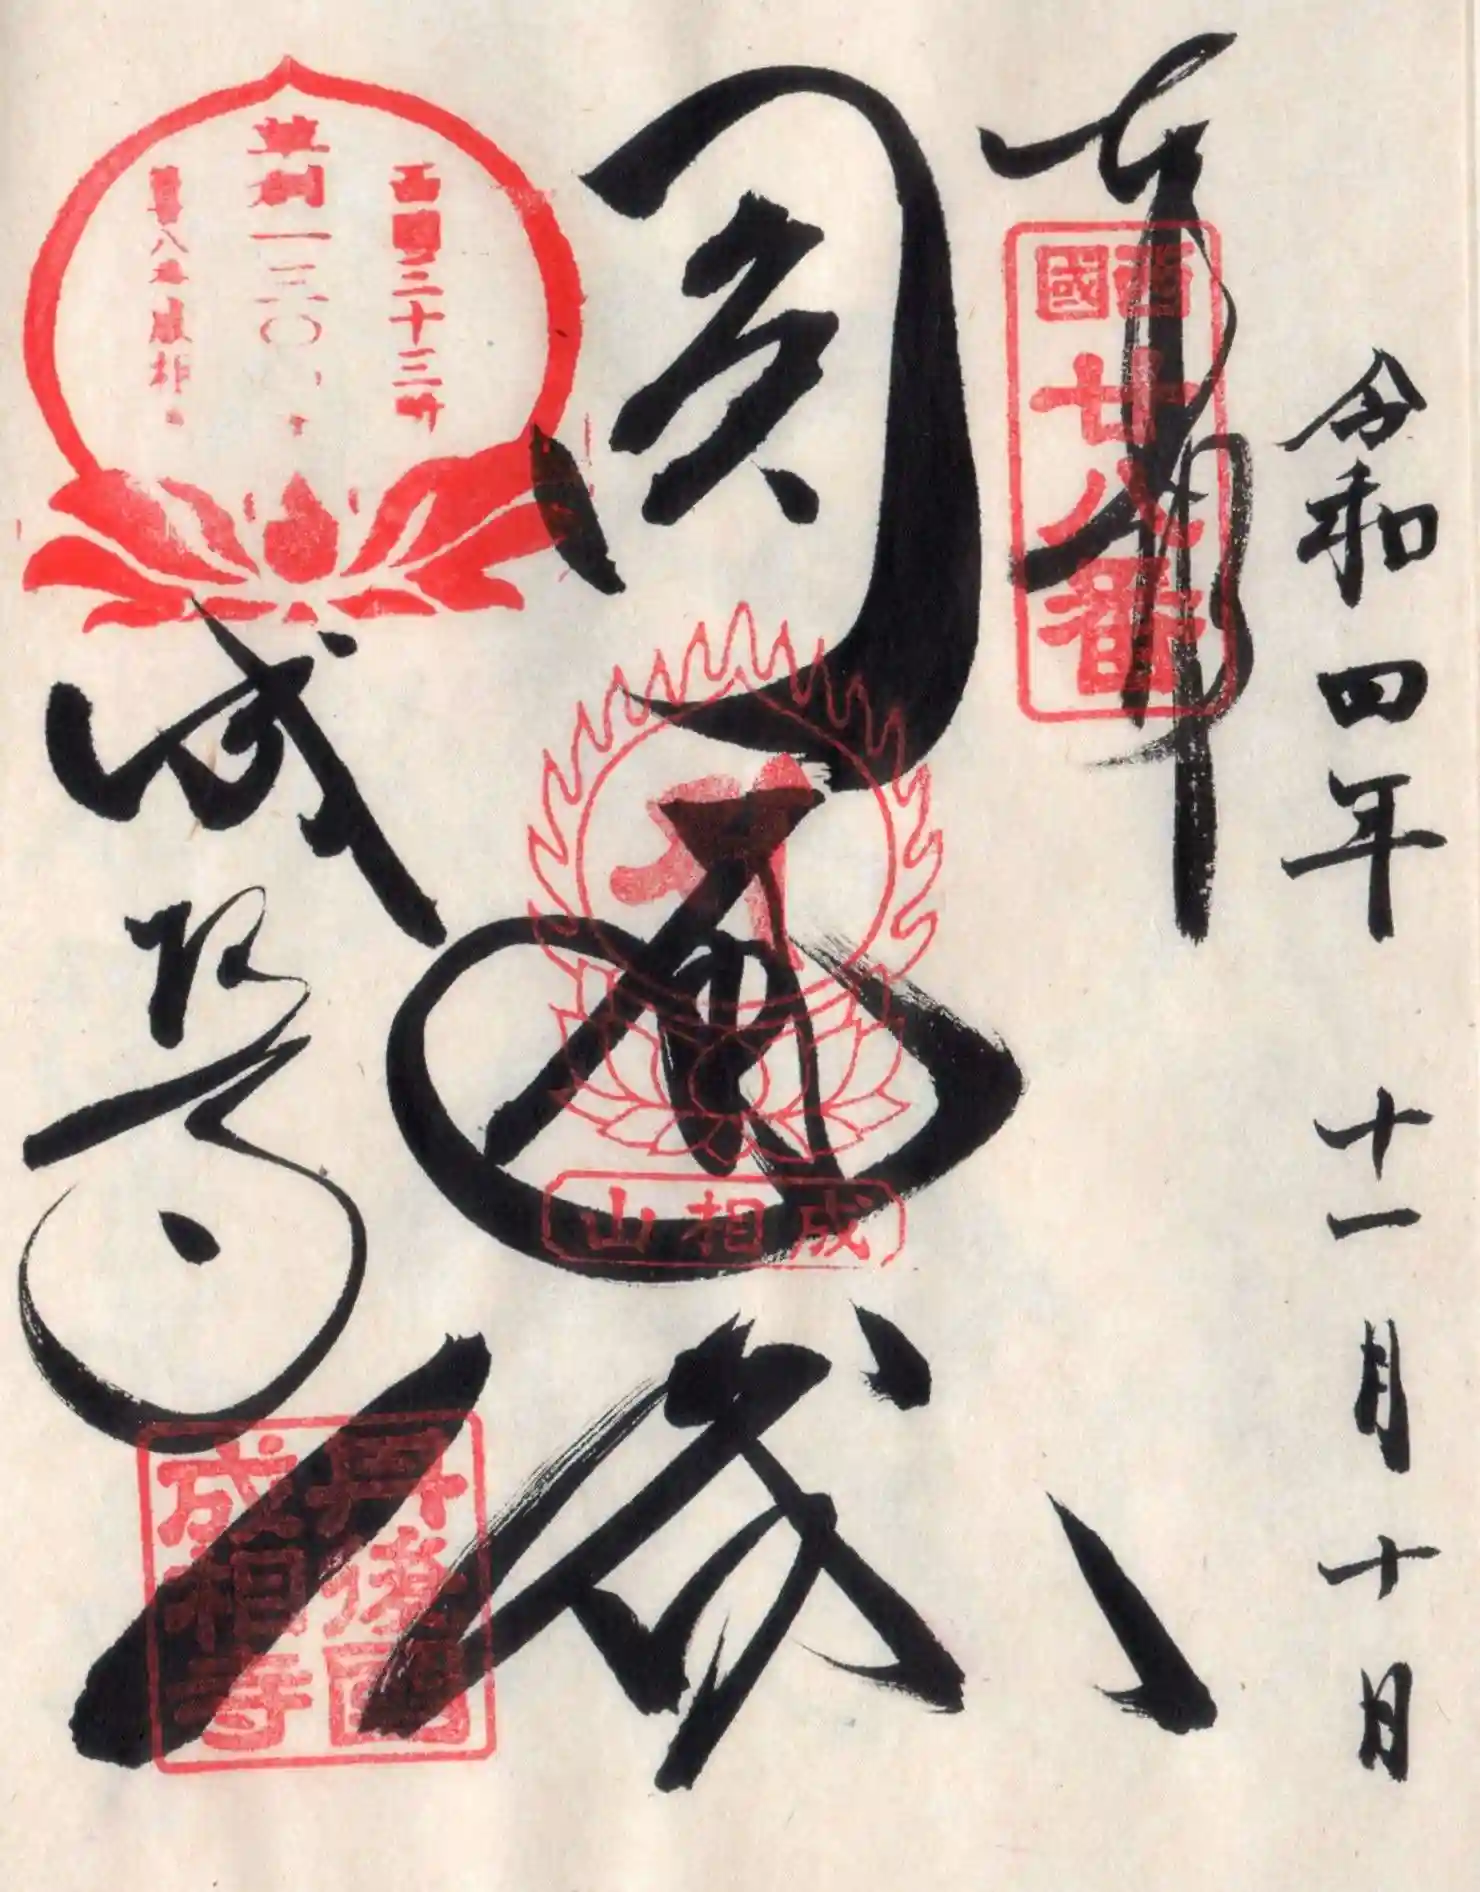 令和四年 十一月十日
奉拝
西國
廿八番
圓通殿
成相山
西国三十三所
草創一三〇〇
成相寺
丹後國
成相寺